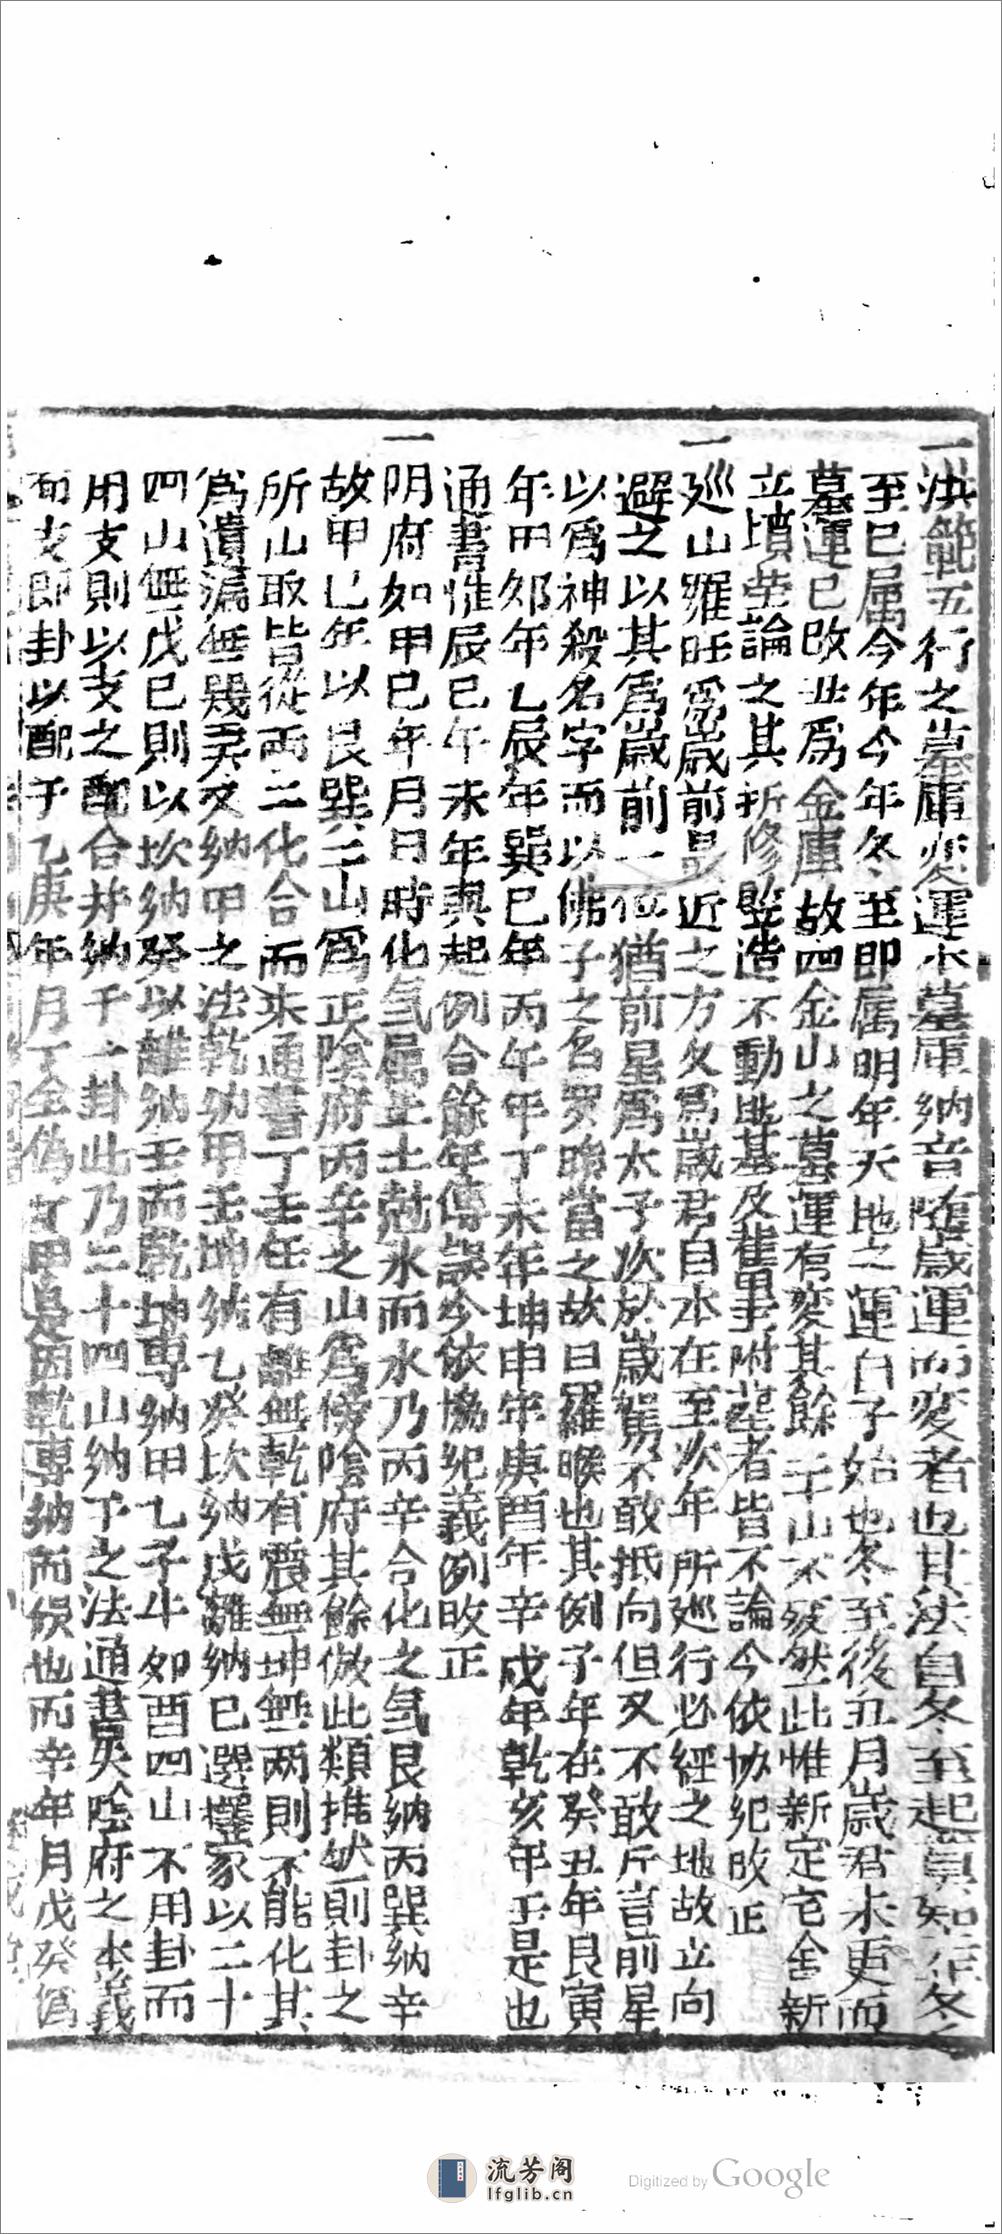 一洪範五行之墓庫変運本墓庫納音随歳運而変者也其法自冬至起算如昨冬
至巳属今年今年冬至即属明年天地之運自子始也冬至後丑月歳君未更而
墓運已改丑爲金庫故四金山之墓運有変其餘二十山不変然此惟新定宅舍新
立墳塋論之其拆修竪造不動地基及舊塋附葬者皆不論今依协纪改正
一廵山羅㬋爲歳前最近之方夂爲歳君自本在至次年所廵行必經之地故立向
避之以其爲歳前一位猶前星爲太子次於歳駕不敢抵向但又不敢斥言前星
以爲神殺名字而以佛子之名羅㬋當之故曰羅㬋也其例子年在癸丑年艮寅
年甲夘年乙辰年巽巳年丙午年丁未年坤申年庚酉年辛戌年乾亥年壬是也
通書惟辰巳午未年與起例合餘年傳誤今依協纪義例改正
一阴府如甲巳年月日時化氣属土土尅水而水乃丙辛合化之氣艮納丙巽納辛
故甲巳年以艮巽二山爲正陰府丙辛之山爲傍陰府其餘倣此類推然則卦之
所山取皆從两二化合而来通書丁壬年有離無乾有震無坤無两則不能化其
爲遺漏無幾矣又納甲之法乾納甲壬坤納乙癸坎納戊離納巳選擇家以二十
四山無戊巳則以坎納癸以離納壬而乾坤専納甲乙子午夘酉四山不用卦而
用支則以支之配合并納于一卦此乃二十四山納甲之法通書失陰府之本義
而支即卦以配于乙庚年月丁全偽丁甲是因乾専納而悞也而辛年月戊癸偽
流芳阁
lfglib.cn
Digitized by Google